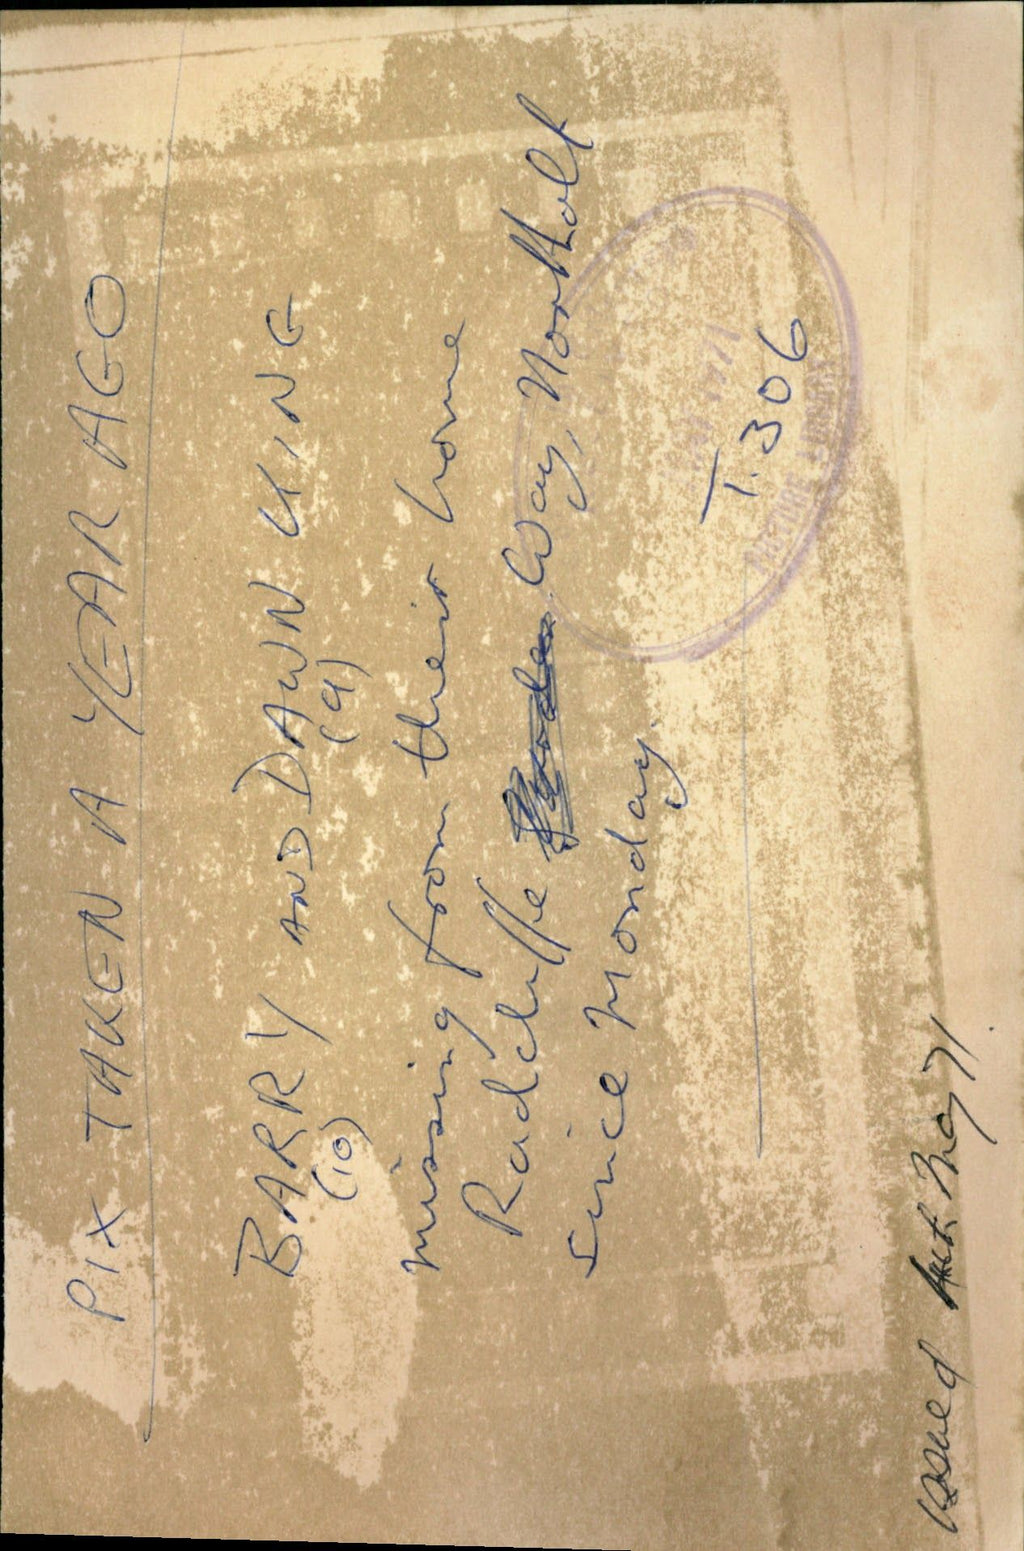 PIX TAKEN A YEAR AGO
BARRY AND DAWN KING
(10) (9)
missing from their home
Radcliffe Way, Northolt
since Monday.
T. 306
1971
PICTURE LIBRARY
May 71.